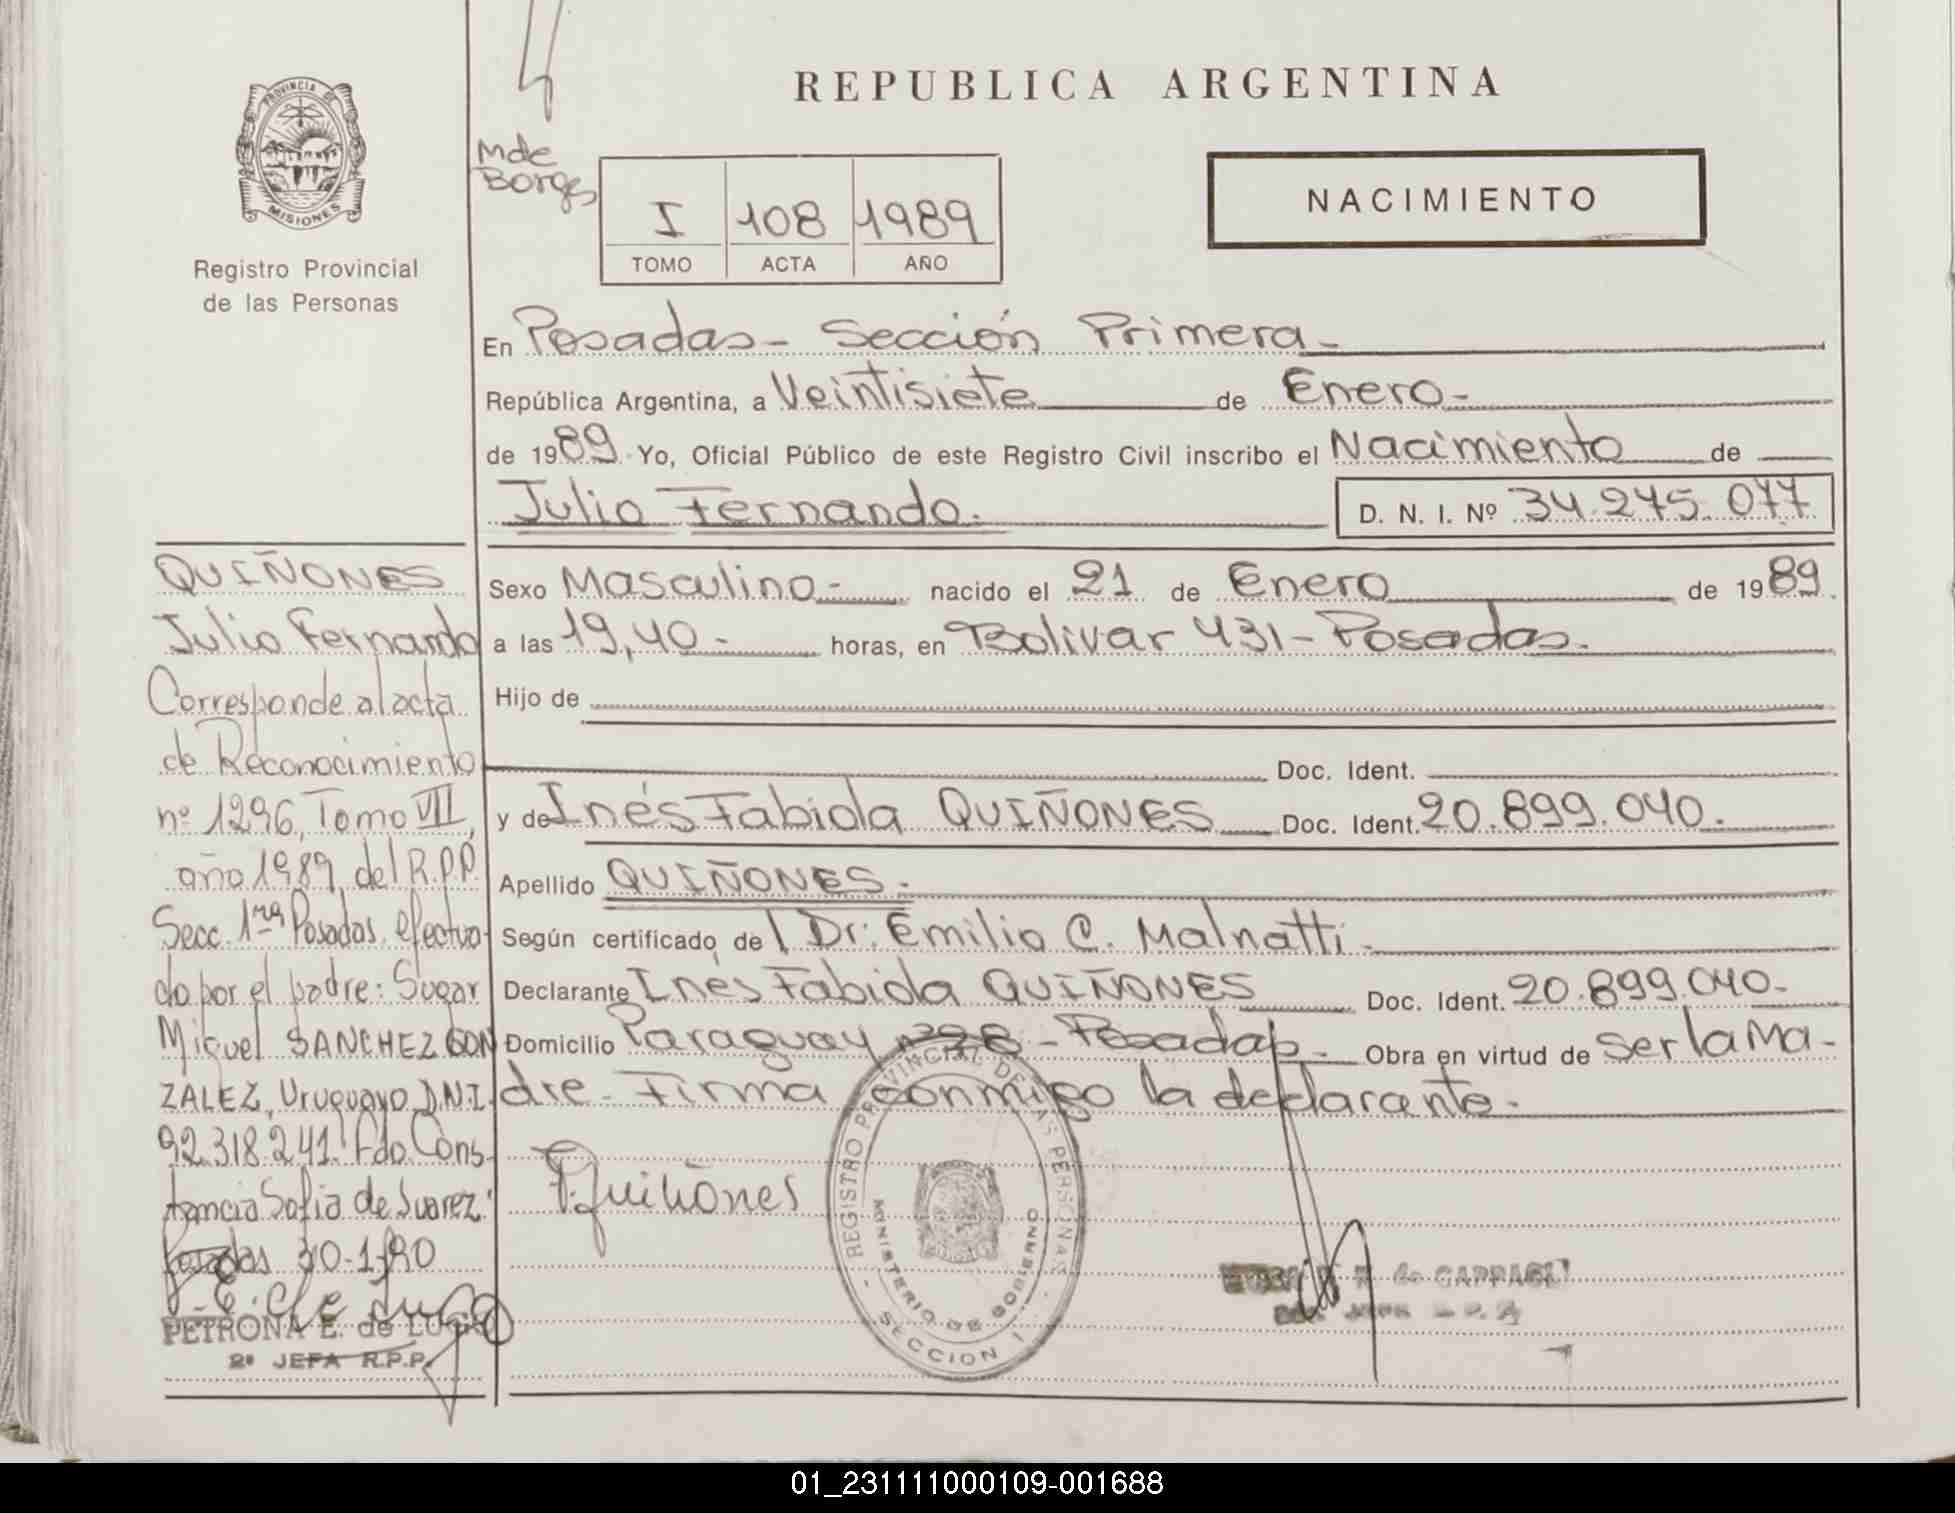 REPUBLICA ARGENTINA
PROVINCIA DE
MISIONES
Registro Provincial
de las Personas
M de
Borges
I 108 1989
TOMO ACTA AÑO
NACIMIENTO
En Posadas - Sección Primera -
República Argentina, a Veintisiete de Enero -
de 1989 Yo, Oficial Público de este Registro Civil inscribo el Nacimiento de
Julio Fernando. D. N. I. Nº 34.275.077
Sexo Masculino - nacido el 21 de Enero de 1989.
a las 19,40 - horas, en Bolivar 431 - Posadas.
Hijo de
Doc. Ident.
y de Inés Fabiola QUIÑONES Doc. Ident. 20.899.040.
Apellido QUIÑONES.
Según certificado de l Dr: Emilio C. Malnatti -
Declarante Inés Fabiola QUIÑONES Doc. Ident. 20.899.040-
Domicilio Paraguay - Posadas - Obra en virtud de ser la Ma-
dre - Firma conmigo la declarante -
QUIÑONES
Julio Fernando
Corresponde al acta
de Reconocimiento
nº 1296, Tomo VII,
año 1989, del R.P.P.
Secc. 1ra Posadas, efectua-
do por el padre: Sugar
Miguel SANCHEZ GON
ZALEZ, Uruguayo D.N.I.
92.318.241. Fdo. Cons-
tancia Sofia de Suarez.
Posadas 30-1-90
PETRONA E. de LUGO
2ª JEFA R.P.P.
Quiñones
REGISTRO PROVINCIAL DE LAS PERSONAS
MINISTERIO DE GOBIERNO
SECCION I
01_231111000109-001688